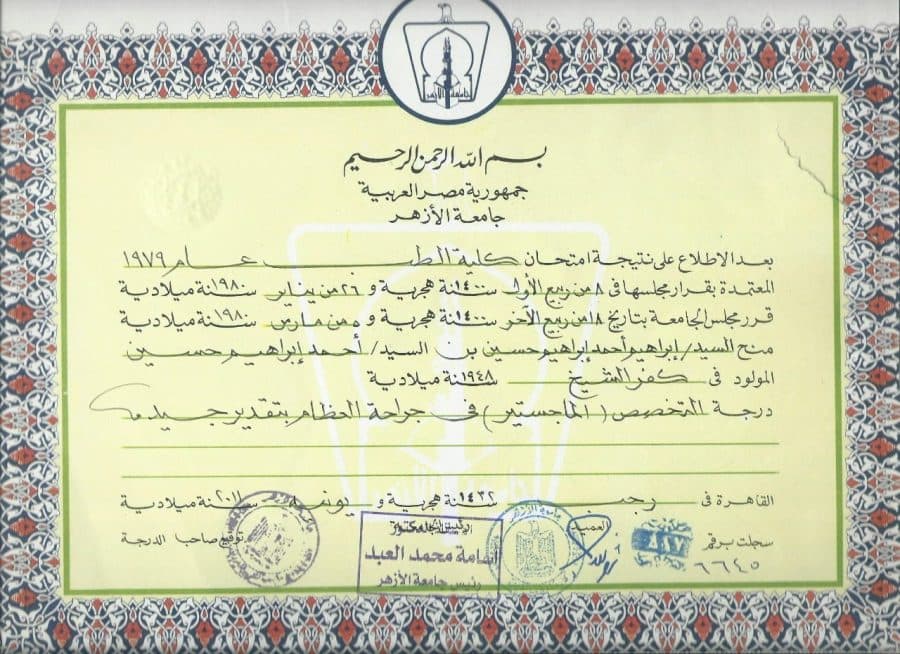 جامعة الأزهر
بسم الله الرحمن الرحيم
جمهورية مصر العربية
جامعة الأزهر
بعد الاطلاع على نتيجة امتحان كلية الطب عام ١٩٧٩
المعتمدة بقرار مجلسها فى ٨ من ربيع الأول سنة ١٤٠٠ هجرية و ٢٦ من يناير سنة ١٩٨٠ ميلادية
قرر مجلس الجامعة بتاريخ ١٨ من ربيع الآخر سنة ١٤٠٠ هجرية و ٥ من مارس سنة ١٩٨٠ ميلادية
منح السيد / إبراهيم أحمد إبراهيم حسين بن السيد / أحمد إبراهيم حسين
المولود فى كفر الشيخ سنة ١٩٤٨ ميلادية
درجة التخصص (الماجستير) فى جراحة العظام بتقدير جيد
القاهرة فى رجب سنة ١٤٣٢ هجرية و يونيه سنة ٢٠١١ ميلادية
سجلت برقم
٦٦٤٥
العميد
أسامة محمد العبد
رئيس جامعة الأزهر
توقيع صاحب الدرجة